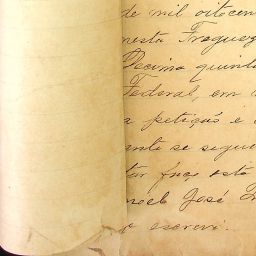 de mil oitocen
nesta Freguez
Decima quinta
Federal, em
a petição e
ante se segue
tar faço esta
noel José
o escrevi.